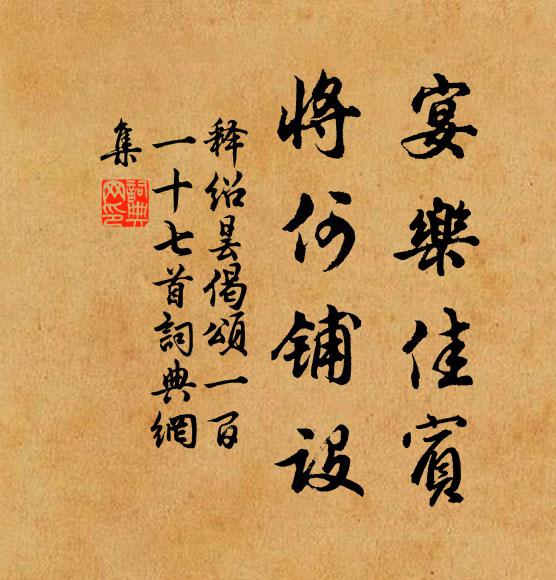 宴樂佳賓
將何鋪設
释紹昙偈頌一百
一十七首詞典網
集
詞典
网印